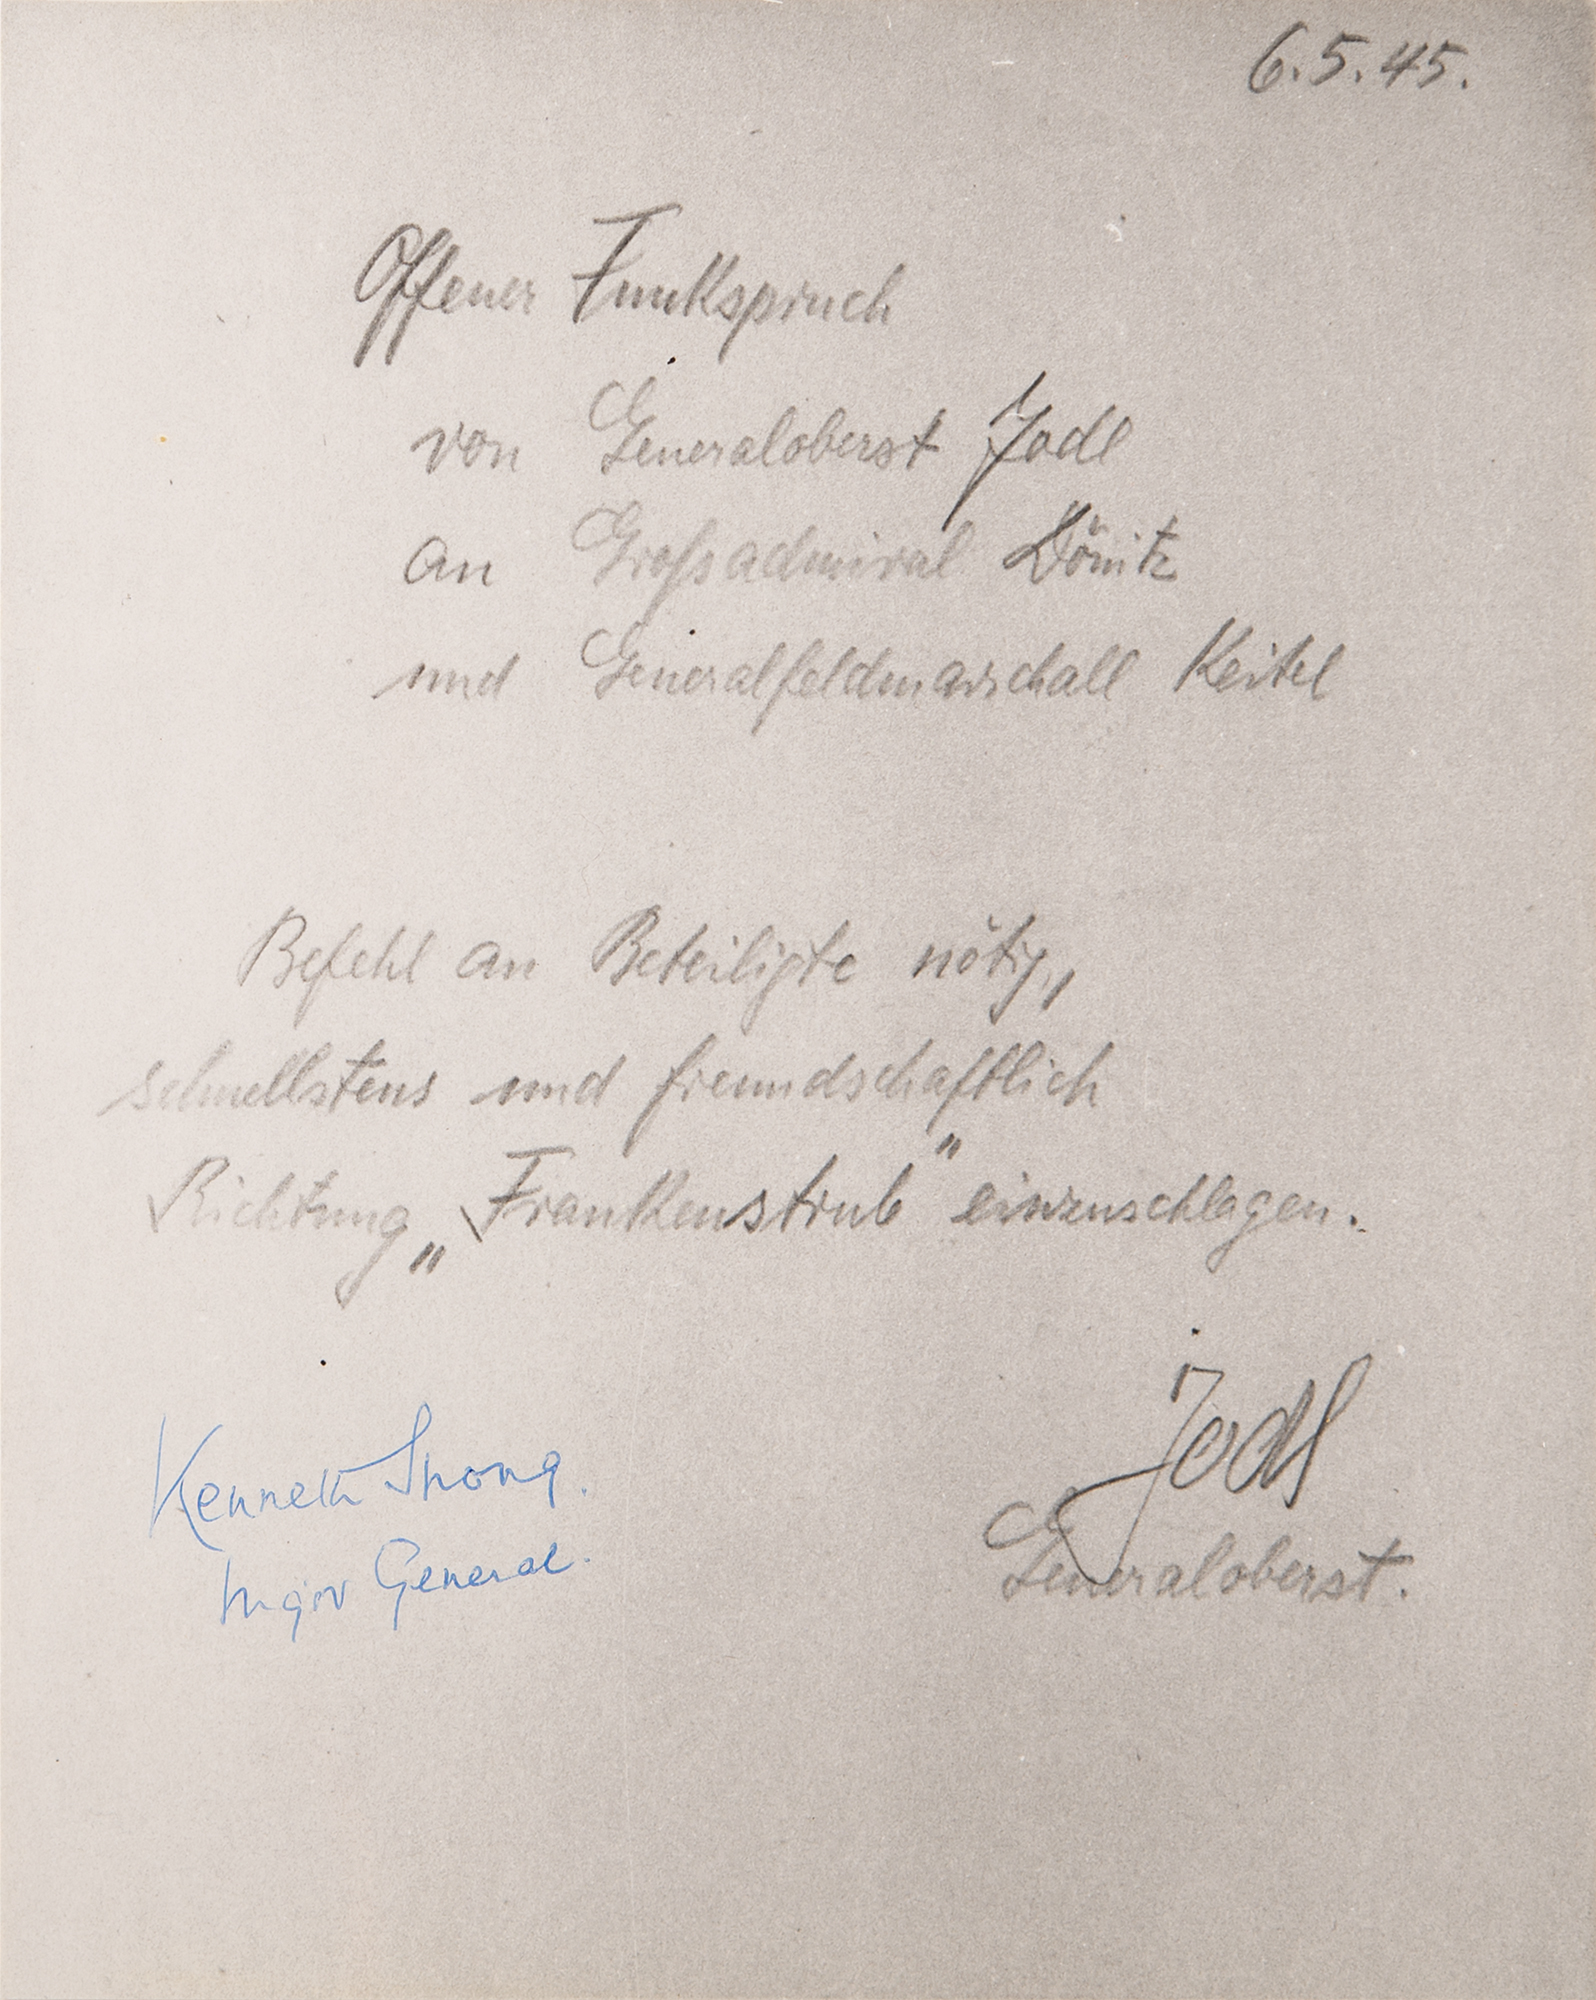 6.5.45.
Offener Funkspruch
von Generaloberst Jodl
an Großadmiral Dönitz
und Generalfeldmarschall Keitel
Befehl an Beteiligte nötig,
schnellstens und freundschaftlich
Richtung „Frankenstrub" einzuschlagen.
Jodl
Generaloberst.
Kenneth Strong.
Major General.